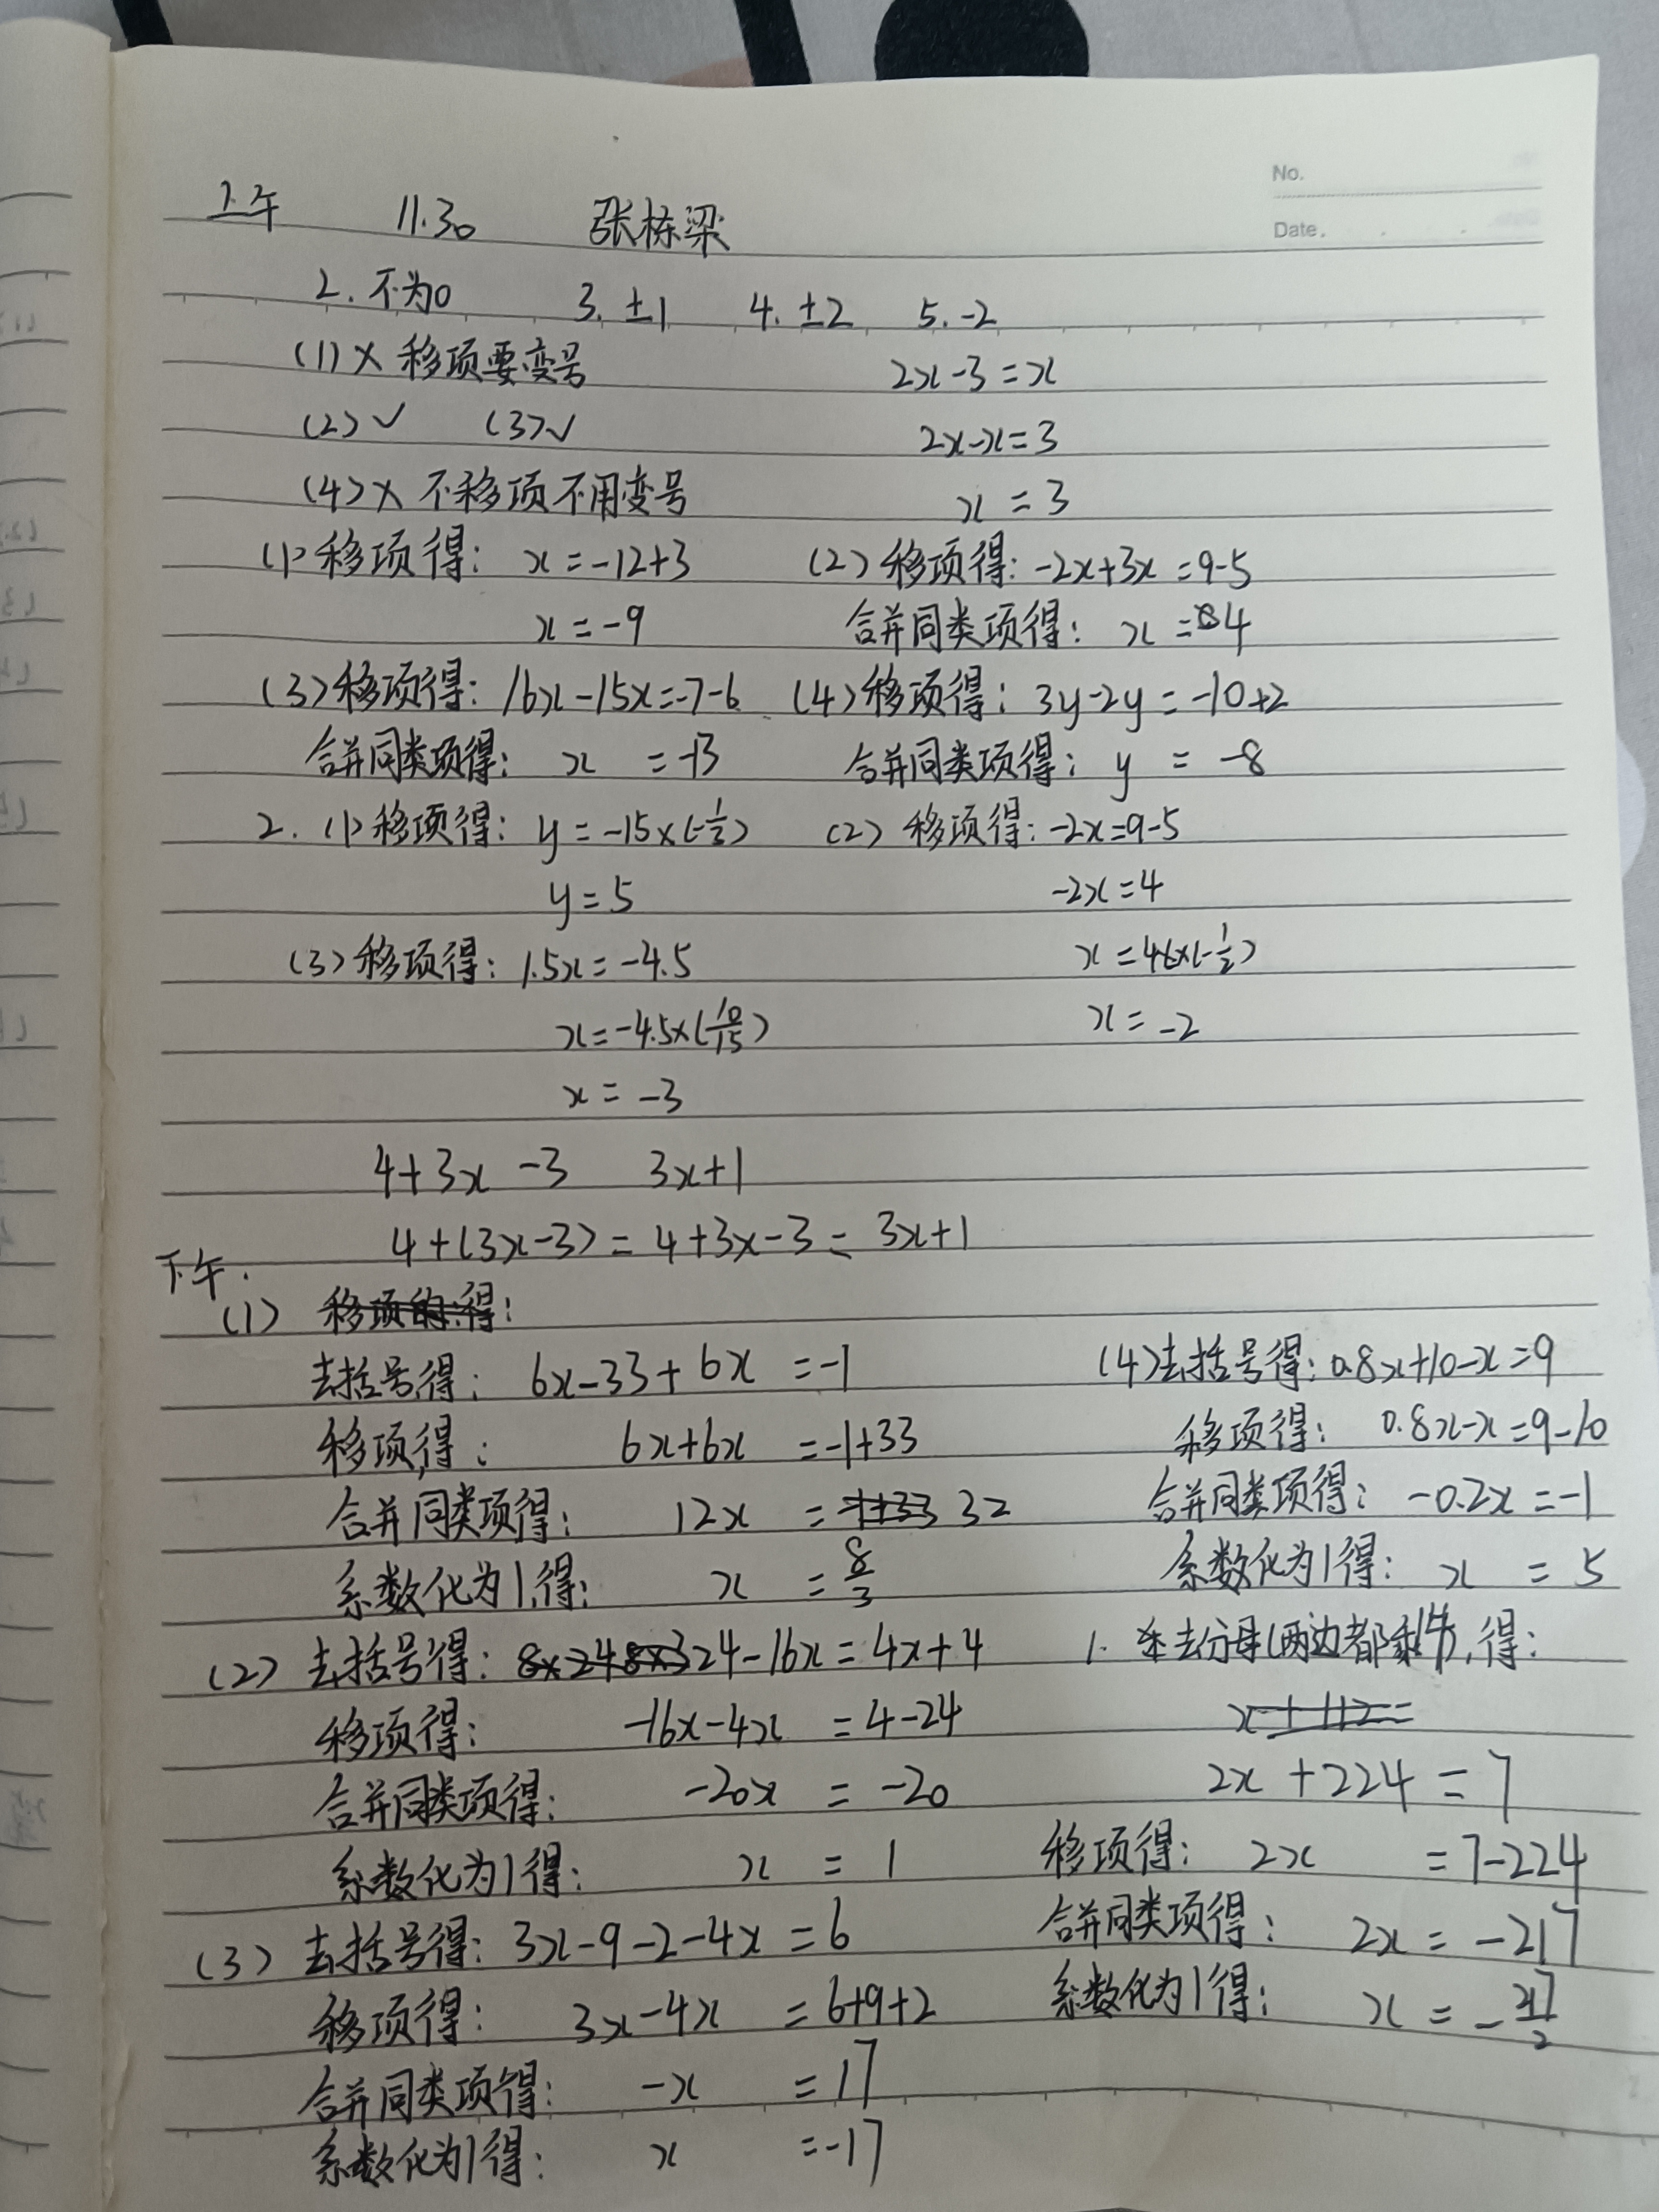 No.
Date.
上午 11.30 张栋梁
2. 不为0 3. ±1 4. ±2 5. -2
(1)× 移项要变号 2x-3=x
(2)✓ (3)✓ 2x-x=3
(4)× 不移项不用变号 x=3
(1)移项得: x=-12+3 (2)移项得: -2x+3x=9-5
x=-9 合并同类项得: x=4
(3)移项得: 16x-15x=-7-6 (4)移项得: 3y-2y=-10+2
合并同类项得: x=-13 合并同类项得: y=-8
2. (1)移项得: y=-15×(-1/3) (2)移项得: -2x=9-5
y=5 -2x=4
(3)移项得: 1.5x=-4.5 x=4×(-1/2)
x=-4.5×(10/15) x=-2
x=-3
4+3x-3 3x+1
4+(3x-3)=4+3x-3=3x+1
下午.
(1) 移项的得:
去括号得: 6x-33+6x=-1 (4)去括号得: 0.8x+10-x=9
移项得: 6x+6x=-1+33 移项得: 0.8x-x=9-10
合并同类项得: 12x=-1+33 32 合并同类项得: -0.2x=-1
系数化为1得: x=8/3 系数化为1得: x=5
(2)去括号得: 8×24 8×3 24-16x=4x+4 1. 去分母(两边都乘14),得:
移项得: -16x-4x=4-24 x+112=
合并同类项得: -20x=-20 2x+224=7
系数化为1得: x=1 移项得: 2x=7-224
(3)去括号得: 3x-9-2-4x=6 合并同类项得: 2x=-217
移项得: 3x-4x=6+9+2 系数化为1得: x=-217/2
合并同类项得: -x=17
系数化为1得: x=-17